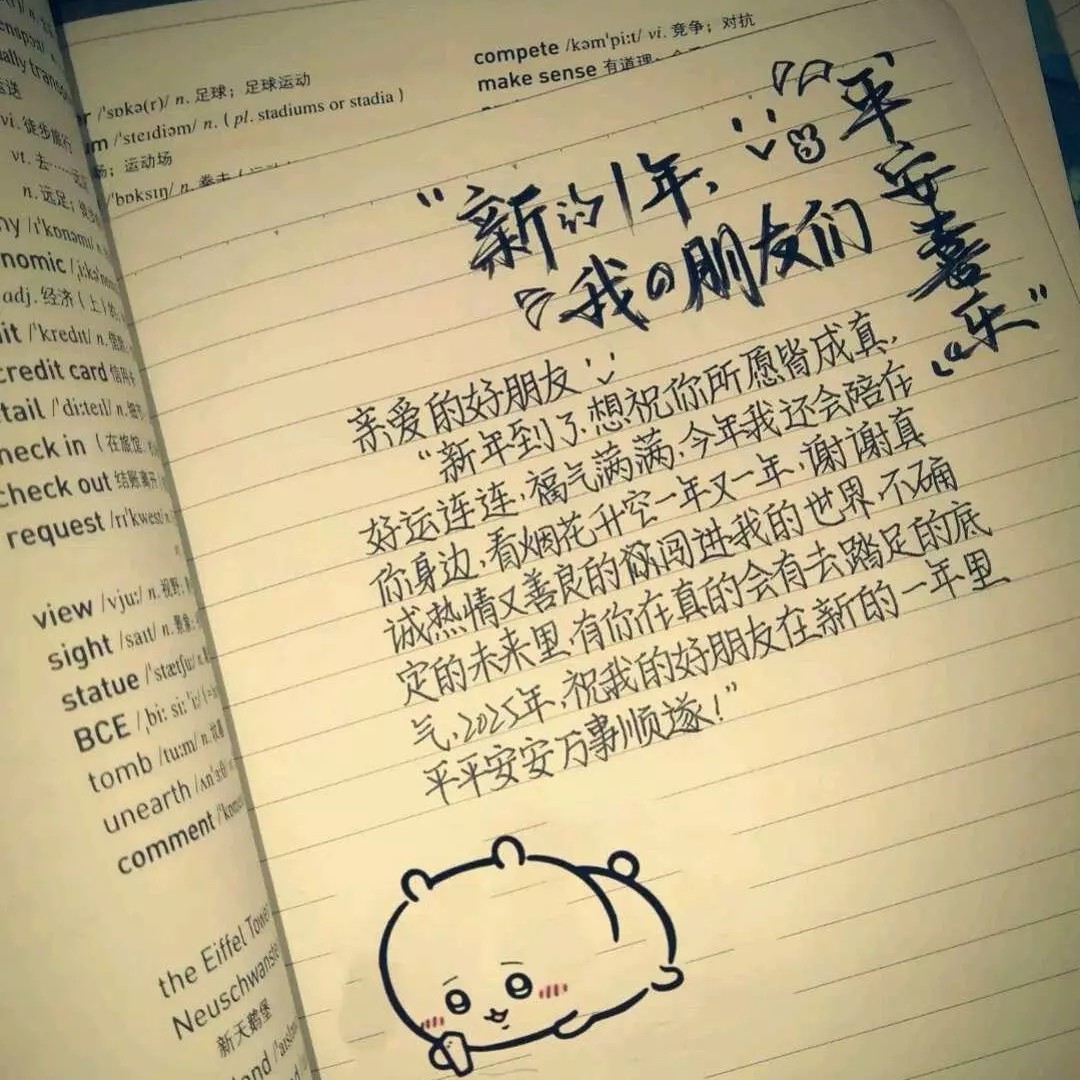 compete /kəmˈpiːt/ vi. 竞争；对抗
make sense 有道理
/ˈsɒkə(r)/ n. 足球；足球运动
/ˈsteɪdiəm/ n. ( pl. stadiums or stadia )
运动场
/ˈbɒksɪŋ/ n. 拳击
vi. 徒步旅行
vt. 去
n. 远足；
adj. 经济（上）的
/ˈkredɪt/ n.
credit card 信用卡
/ˈdiːteɪl/ n. 细节
check in （在旅馆
check out 结账离开
request /rɪˈkwest/ n.
view /vjuː/ n. 视野
sight /saɪt/ n. 景象
statue /ˈstætʃuː/ n.
BCE /ˌbiː siː ˈiː/
tomb /tuːm/ n. 坟墓
unearth /ʌnˈɜːθ/
comment /ˈkɒment
the Eiffel Tower
Neuschwanste
新天鹅堡
“新的1年,
我の朋友们
平安喜乐”
亲爱的好朋友
“新年到了,想祝你所愿皆成真,
好运连连,福气满满,今年我还会陪在
你身边,看烟花升空一年又一年,谢谢真
诚热情又善良的你闯进我的世界,不确
定的未来里,有你在真的会有去踏足的底
气,2025年,祝我的好朋友在新的一年里
平平安安万事顺遂!”